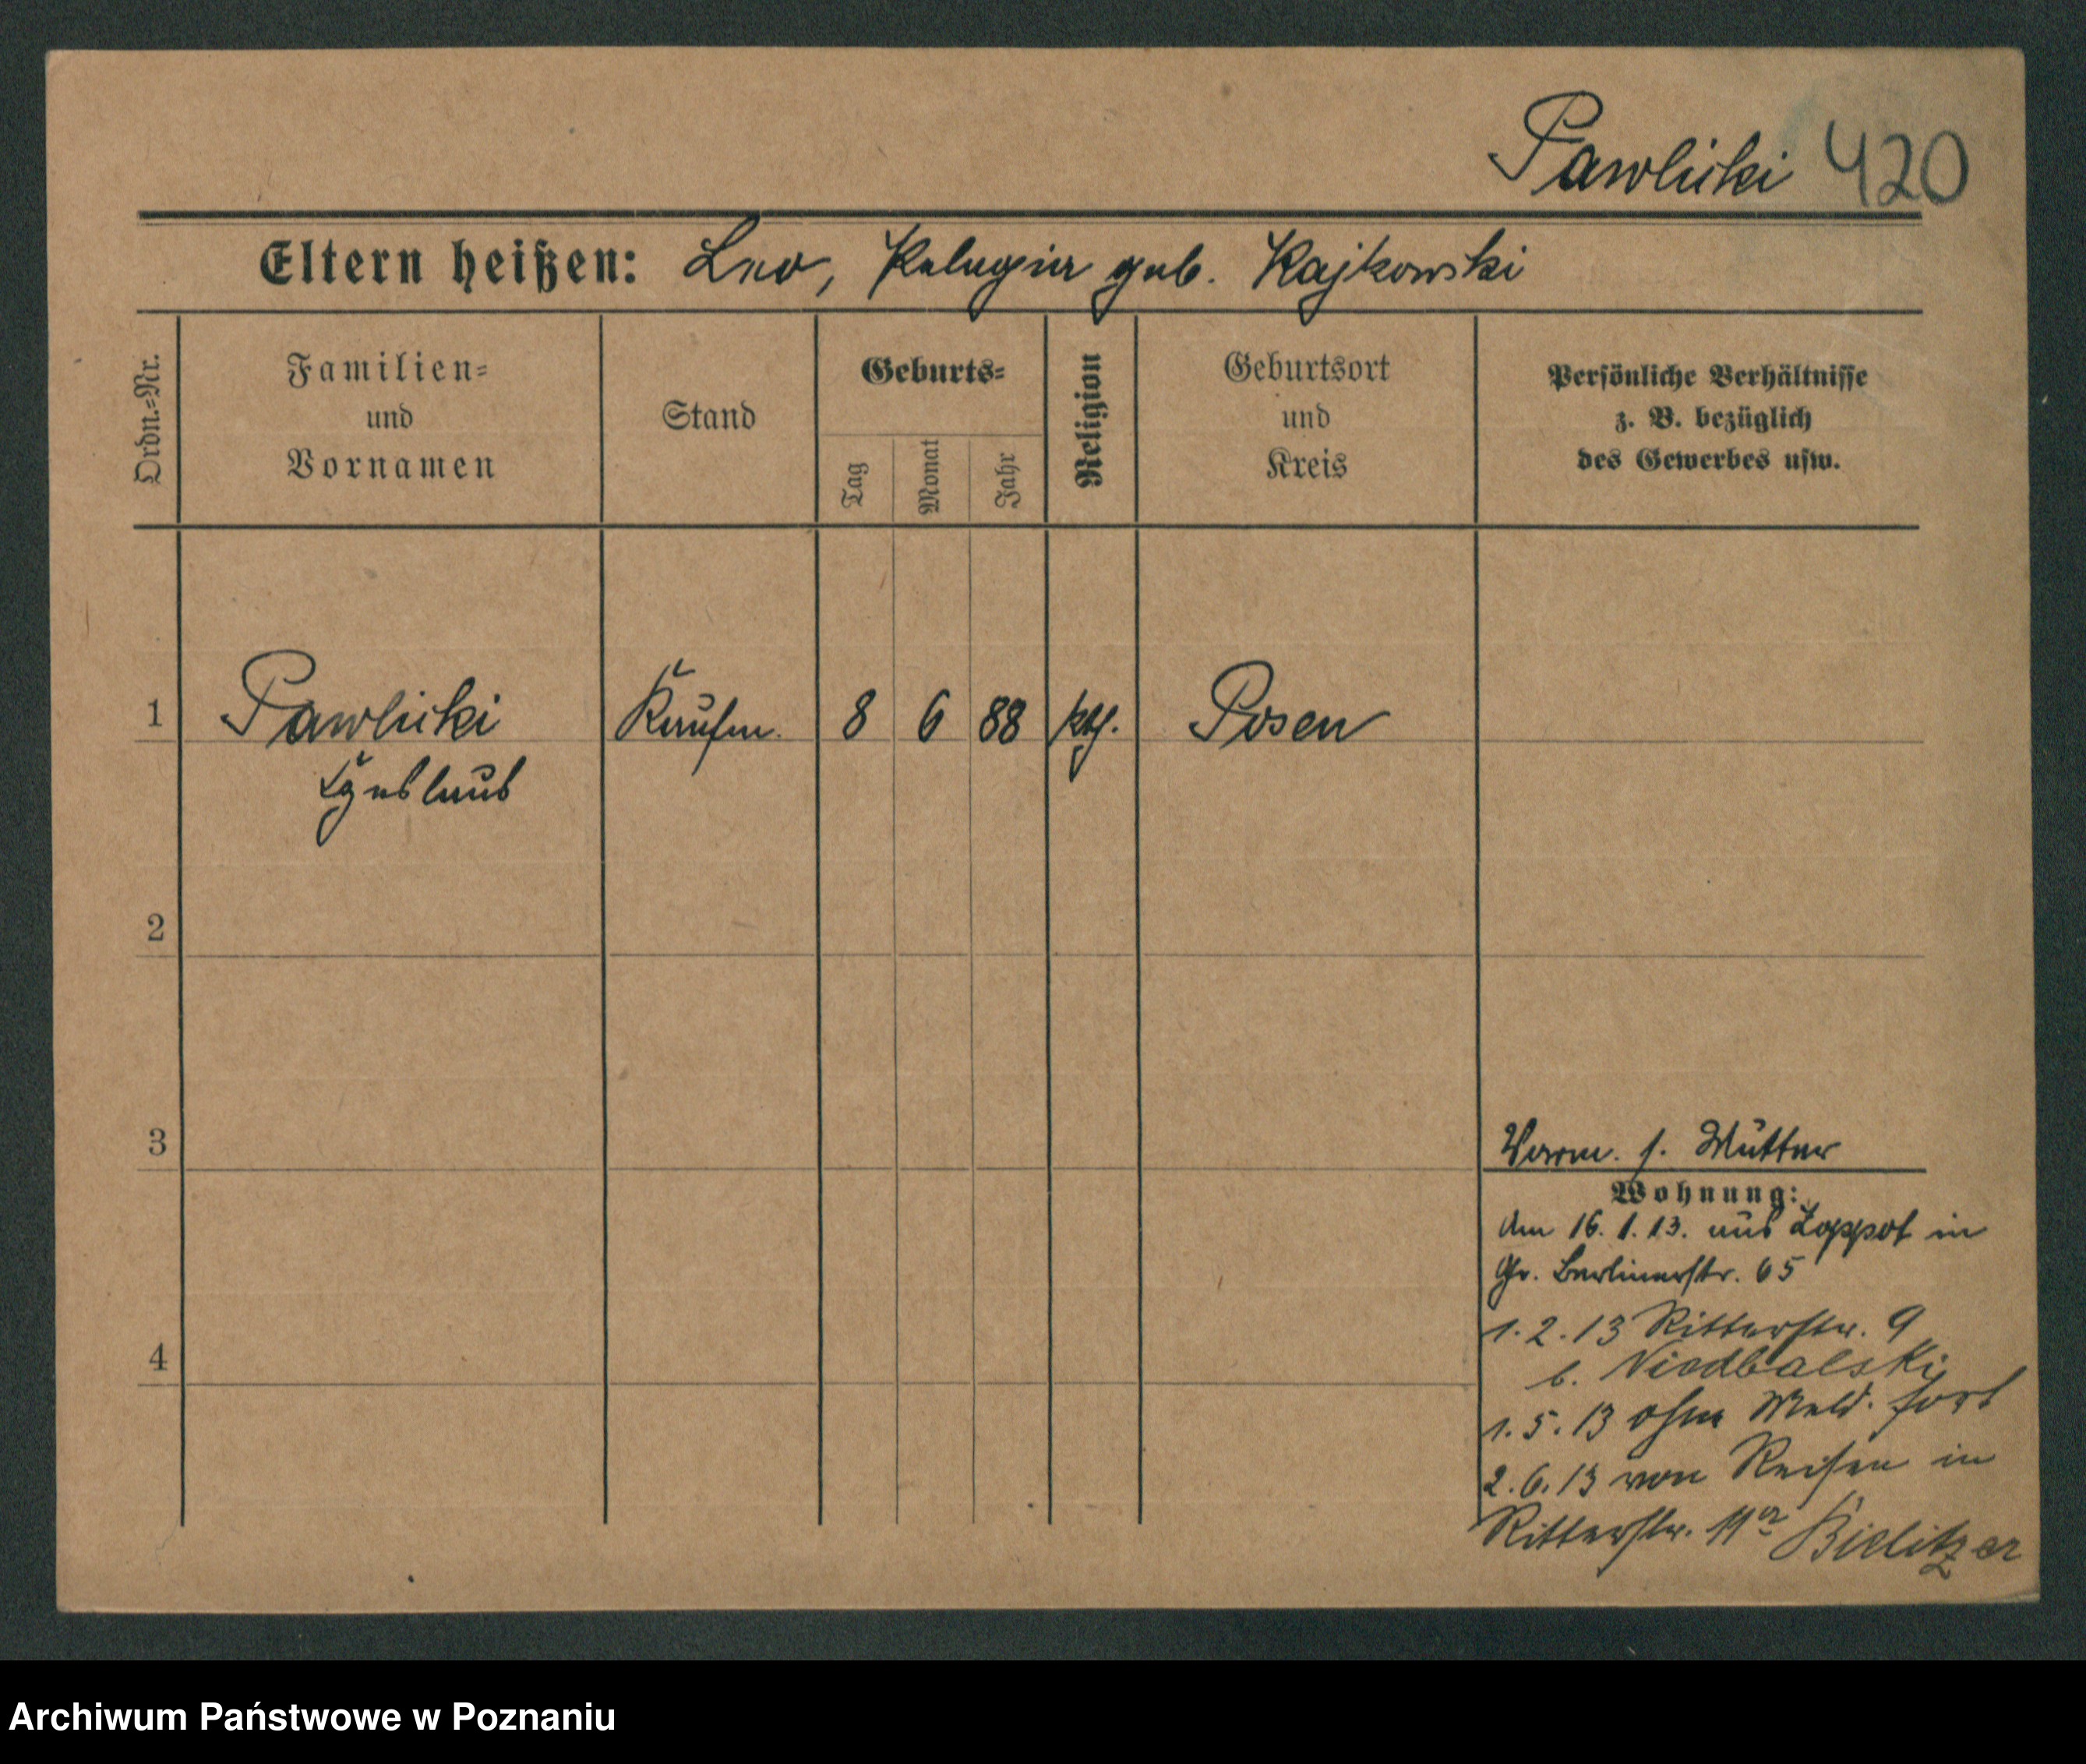 Pawlicki 420
Eltern heißen: Leo, Pelagia geb. Rajkowski
Ordn.=Nr.
Familien=
und
Vornamen
Stand
Geburts=
Tag
Monat
Jahr
Religion
Geburtsort
und
Kreis
Persönliche Verhältnisse
z. B. bezüglich
des Gewerbes usw.
1 Pawlicki Kaufm. 8 6 88 kth. Posen
2
3
4
Verm. s. Mutter
Wohnung:
Am 16. 1. 13. aus Zoppot in
Gr. Berlinerstr. 65
1. 2. 13 Ritterstr. 9
b. Niedbalski
1. 5. 13 ohne Meld. fort
2. 6. 13 von Reisen in
Ritterstr. 11a Bielitzer
Archiwum Państwowe w Poznaniu